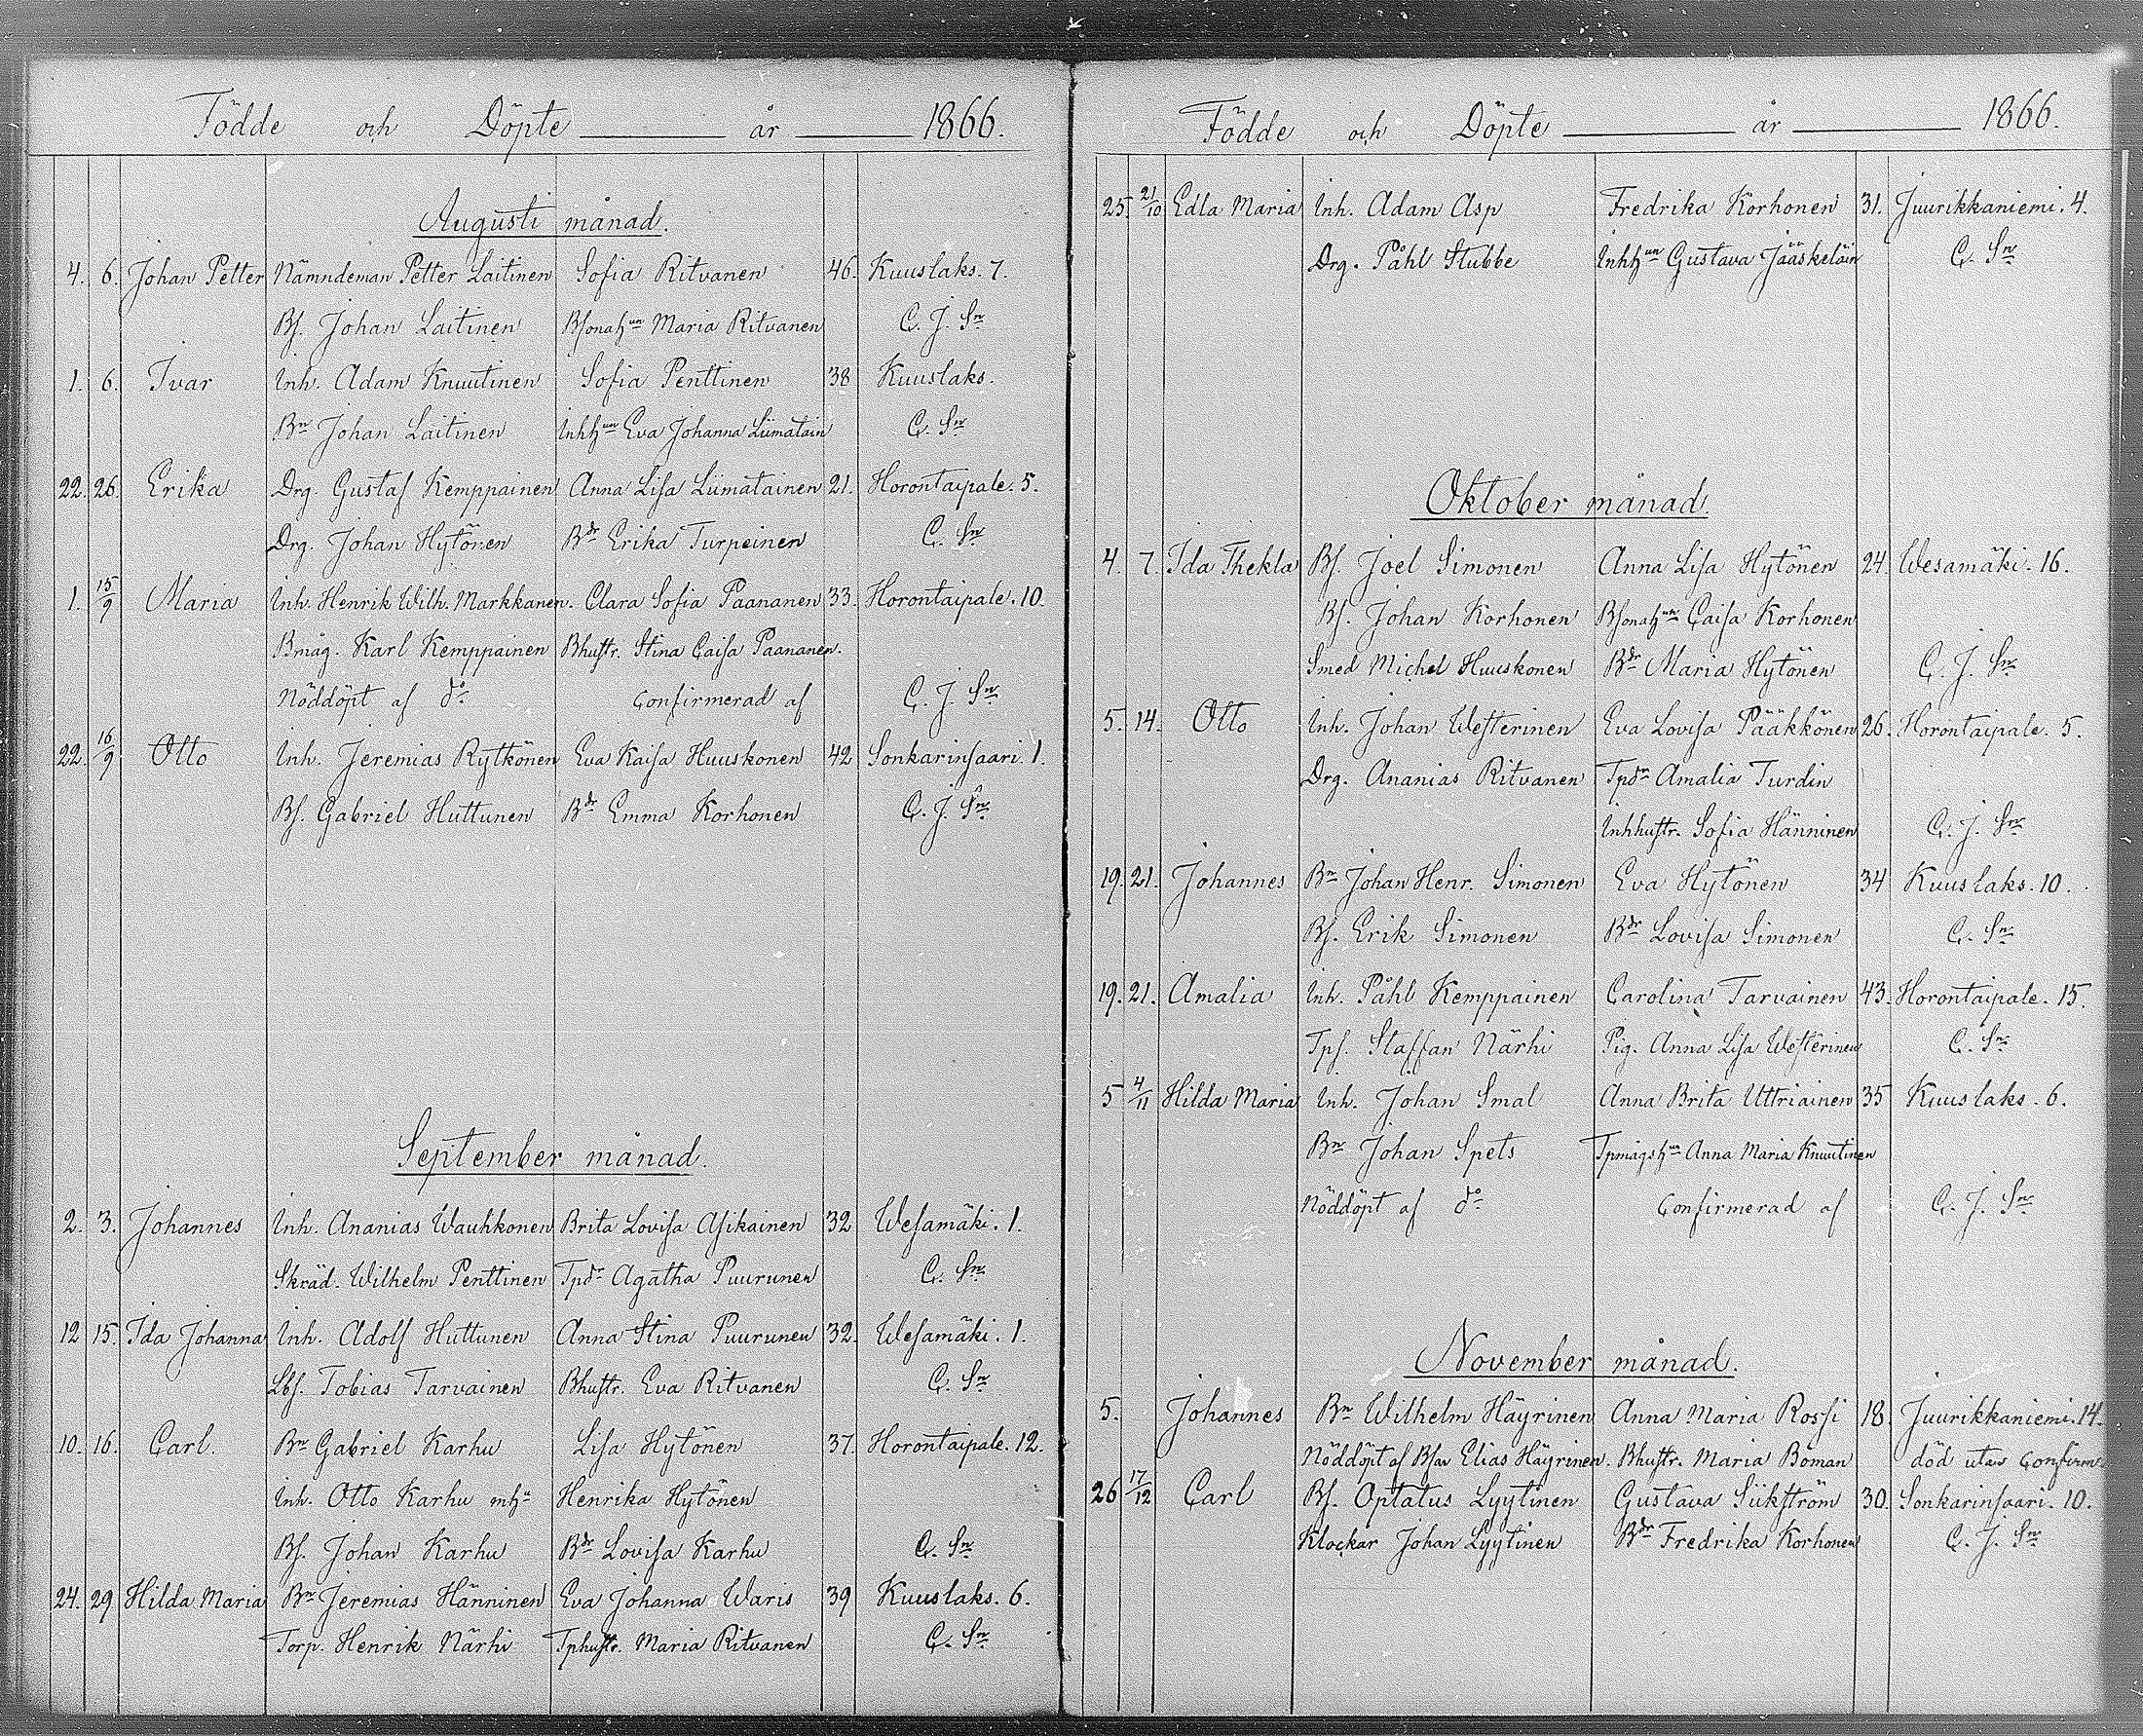 Födde och Döpte ——— år ——— 1866.
Augusti månad.
4. 6. Johan Petter Nämndeman Petter Laitinen Sofia Ritvanen 46. Kuuslaks. 7.
Bs. Johan Laitinen Bsonahun Maria Ritvanen C. J. Sn
1. 6. Ivar Inh. Adam Knuutinen Sofia Penttinen 38 Kuuslaks.
Bn Johan Laitinen Inhhun Eva Johanna Liimatain C. Sn
22. 26. Erika Drg. Gustaf Kemppainen Anna Lisa Liimatainen 21. Horontaipale. 5.
Drg. Johan Hytönen Bdr Erika Turpeinen C. Sn
1. 15/9 Maria Inh. Henrik Wilh. Markkanen. Clara Sofia Paananen 33. Horontaipale. 10.
Bmåg. Karl Kemppainen Bhustr. Stina Caisa Paananen.
Nöddöpt af do Confirmerad af C. J. Sn
22. 16/9 Otto Inh. Jeremias Rytkönen Eva Kaisa Huuskonen 42 Sonkarinsaari. 1.
Bs. Gabriel Huttunen Bdr Emma Korhonen C. J. Sn
September månad.
2. 3. Johannes Inh. Ananias Wauhkonen Brita Lovisa Asikainen 32 Wesamäki. 1.
Skräd. Wilhelm Penttinen Tpdr Agatha Puurunen C. Sn
12 15. Ida Johanna Inh. Adolf Huttunen Anna Stina Puurunen 32. Wesamäki. 1.
Lbs. Tobias Tarvainen Bhustr. Eva Ritvanen C. Sn
10. 16. Carl. Bn Gabriel Karhu Lisa Hytönen 37. Horontaipale. 12.
Inh. Otto Karhu mhu Henrika Hytönen
Bs. Johan Karhu Bdr Lovisa Karhu C. Sn
24. 29 Hilda Maria Bn Jeremias Hänninen Eva Johanna Waris 39 Kuuslaks. 6.
Torp. Henrik Närhi Tphustr. Maria Ritvanen C. Sn
Födde och Döpte ——— år ——— 1866.
25. 21/10 Edla Maria Inh. Adam Asp Fredrika Korhonen 31. Juurikkaniemi. 4.
Drg. Påhl Stubbe Inhhun Gustava Jääskeläin C. Sn
Oktober månad.
4. 7. Ida Thekla Bs. Joel Simonen Anna Lisa Hytönen 24. Wesamäki. 16.
Bs. Johan Korhonen Bsonahun Caisa Korhonen
Smed Michel Huuskonen Bdr Maria Hytönen C. J. Sn
5. 14. Otto Inh. Johan Westerinen Eva Lovisa Pääkkönen 26. Horontaipale. 5.
Drg. Ananias Ritvanen Tpdr Amalia Turdin
Inhhustr. Sofia Hänninen C. J. Sn
19. 21. Johannes Bn Johan Henr. Simonen Eva Hytönen 34 Kuuslaks. 10.
Bs. Erik Simonen Bdr Lovisa Simonen C. Sn
19. 21. Amalia Inh. Påhl Kemppainen Carolina Tarvainen 43. Horontaipale. 15.
Tps. Staffan Närhi Pig. Anna Lisa Westerinen C. Sn
5 4/11 Hilda Maria Inh. Johan Smal Anna Brita Uttriainen 35 Kuuslaks. 6.
Bn Johan Spets Tpmågshun Anna Maria Knuutinen
Nöddöpt af do Confirmerad af C. J. Sn
November månad.
5. Johannes Bn Wilhelm Häyrinen Anna Maria Rossi 18. Juurikkaniemi. 14.
Nöddöpt af Bsn Elias Häyrinen. Bhustr. Maria Boman död utan Confirm.
26 17/12 Carl Bs. Optatus Lyytinen Gustava Siikström 30. Sonkarinsaari. 10.
Klockar Johan Lyytinen Bdr Fredrika Korhonen C. J. Sn